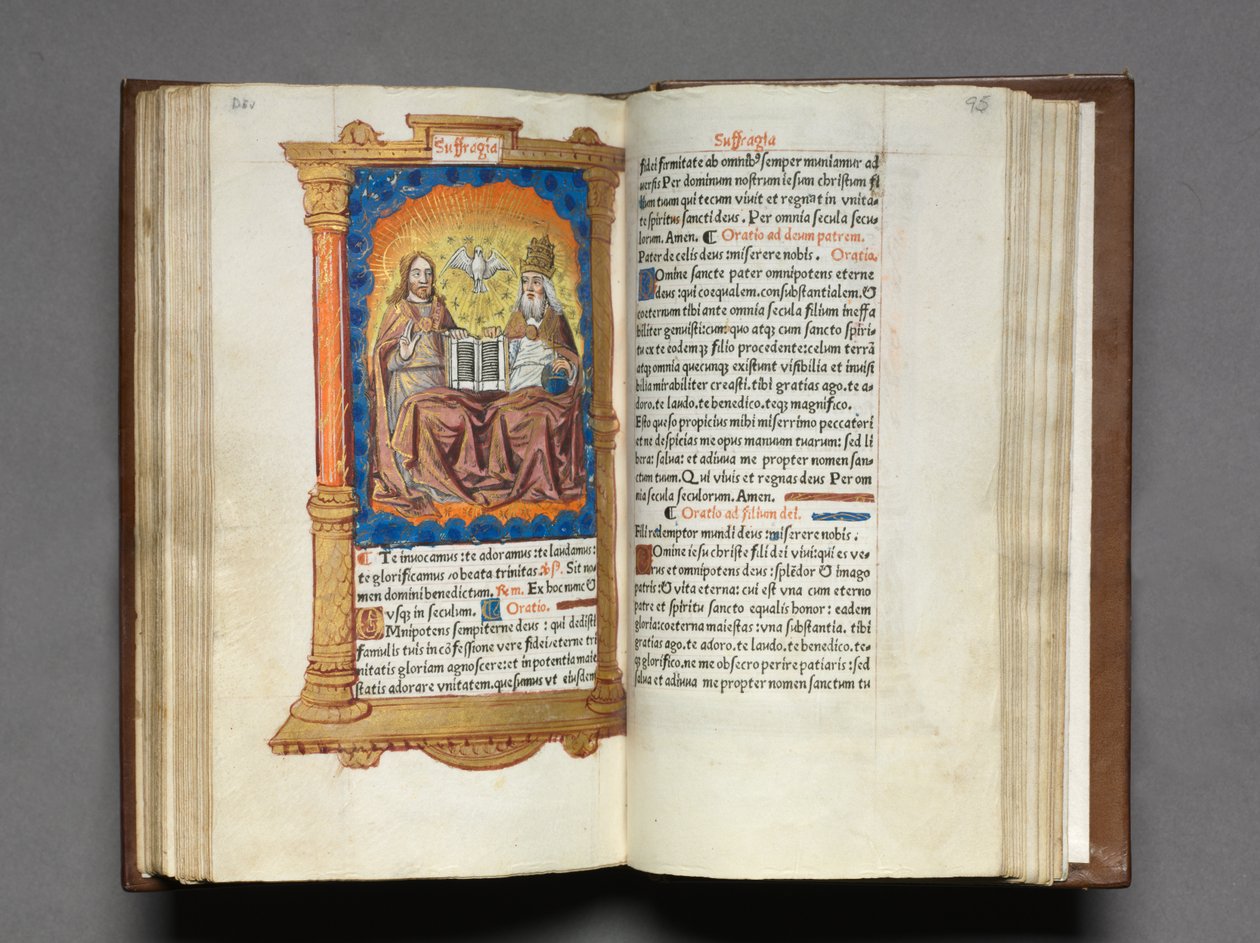 Suffragia
Te inuocamus: te adoramus: te laudamus:
te glorificamus o beata trinitas. ℣. Sit no⸗
men domini benedictum. ℟m. Ex hoc nunc &
vsq; in seculum. Oratio.
OMnipotens sempiterne deus: qui dedisti
famulis tuis in cōfessione vere fidei eterne tri
nitatis gloriam agnoscere: et in potentia maie
statis adorare vnitatem. quesumus vt eiusdem
95
Suffragia
fidei firmitate ab omnibꝰ semper muniamur ad
uersis Per dominum nostrum iesum christum fi
lium tuum qui tecum viuit et regnat in vnita⸗
te spiritus sancti deus. Per omnia secula secu⸗
lorum. Amen. ¶ Oratio ad deum patrem.
Pater de celis deus: miserere nobis. Oratio.
Domine sancte pater omnipotens eterne
deus: qui coequalem. consubstantialem. &
coeternum tibi ante omnia secula filium ineffa
biliter genuisti: cum quo atq; cum sancto spiri⸗
tu ex te eodemq; filio procedente: celum terrā
atq; omnia quecunq; existunt visibilia et inuisi
bilia mirabiliter creasti. tibi gratias ago. te a⸗
doro. te laudo. te benedico. teq; magnifico.
Esto queso propicius mihi miserrimo peccatori
et ne despicias me opus manuum tuarum: sed li
bera: salua: et adiuua me propter nomen san⸗
ctum tuum. Qui viuis et regnas deus Per om
nia secula seculorum. Amen.
¶ Oratio ad filium dei.
Fili redemptor mundi deus: miserere nobis.
Domine iesu christe fili dei viui: qui es ve⸗
rus et omnipotens deus: splēdor & imago
patris: & vita eterna: cui est vna cum eterno
patre et spiritu sancto equalis honor: eadem
gloria: coeterna maiestas: vna substantia. tibi
gratias ago. te adoro. te laudo. te benedico. te⸗
q; glorifico. ne me obsecro perire patiaris: sed
salua et adiuua me propter nomen sanctum tu